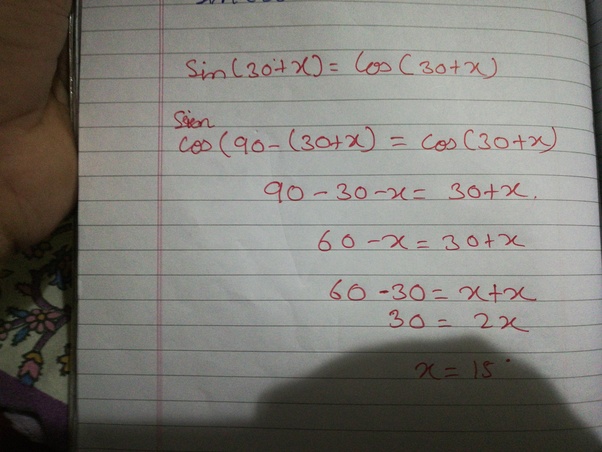 Sin(30+x) = Cos(30+x)
cos(90-(30+x) = cos(30+x)
90-30-x = 30+x.
60-x = 30+x
60-30 = x+x
30 = 2x
x = 15°